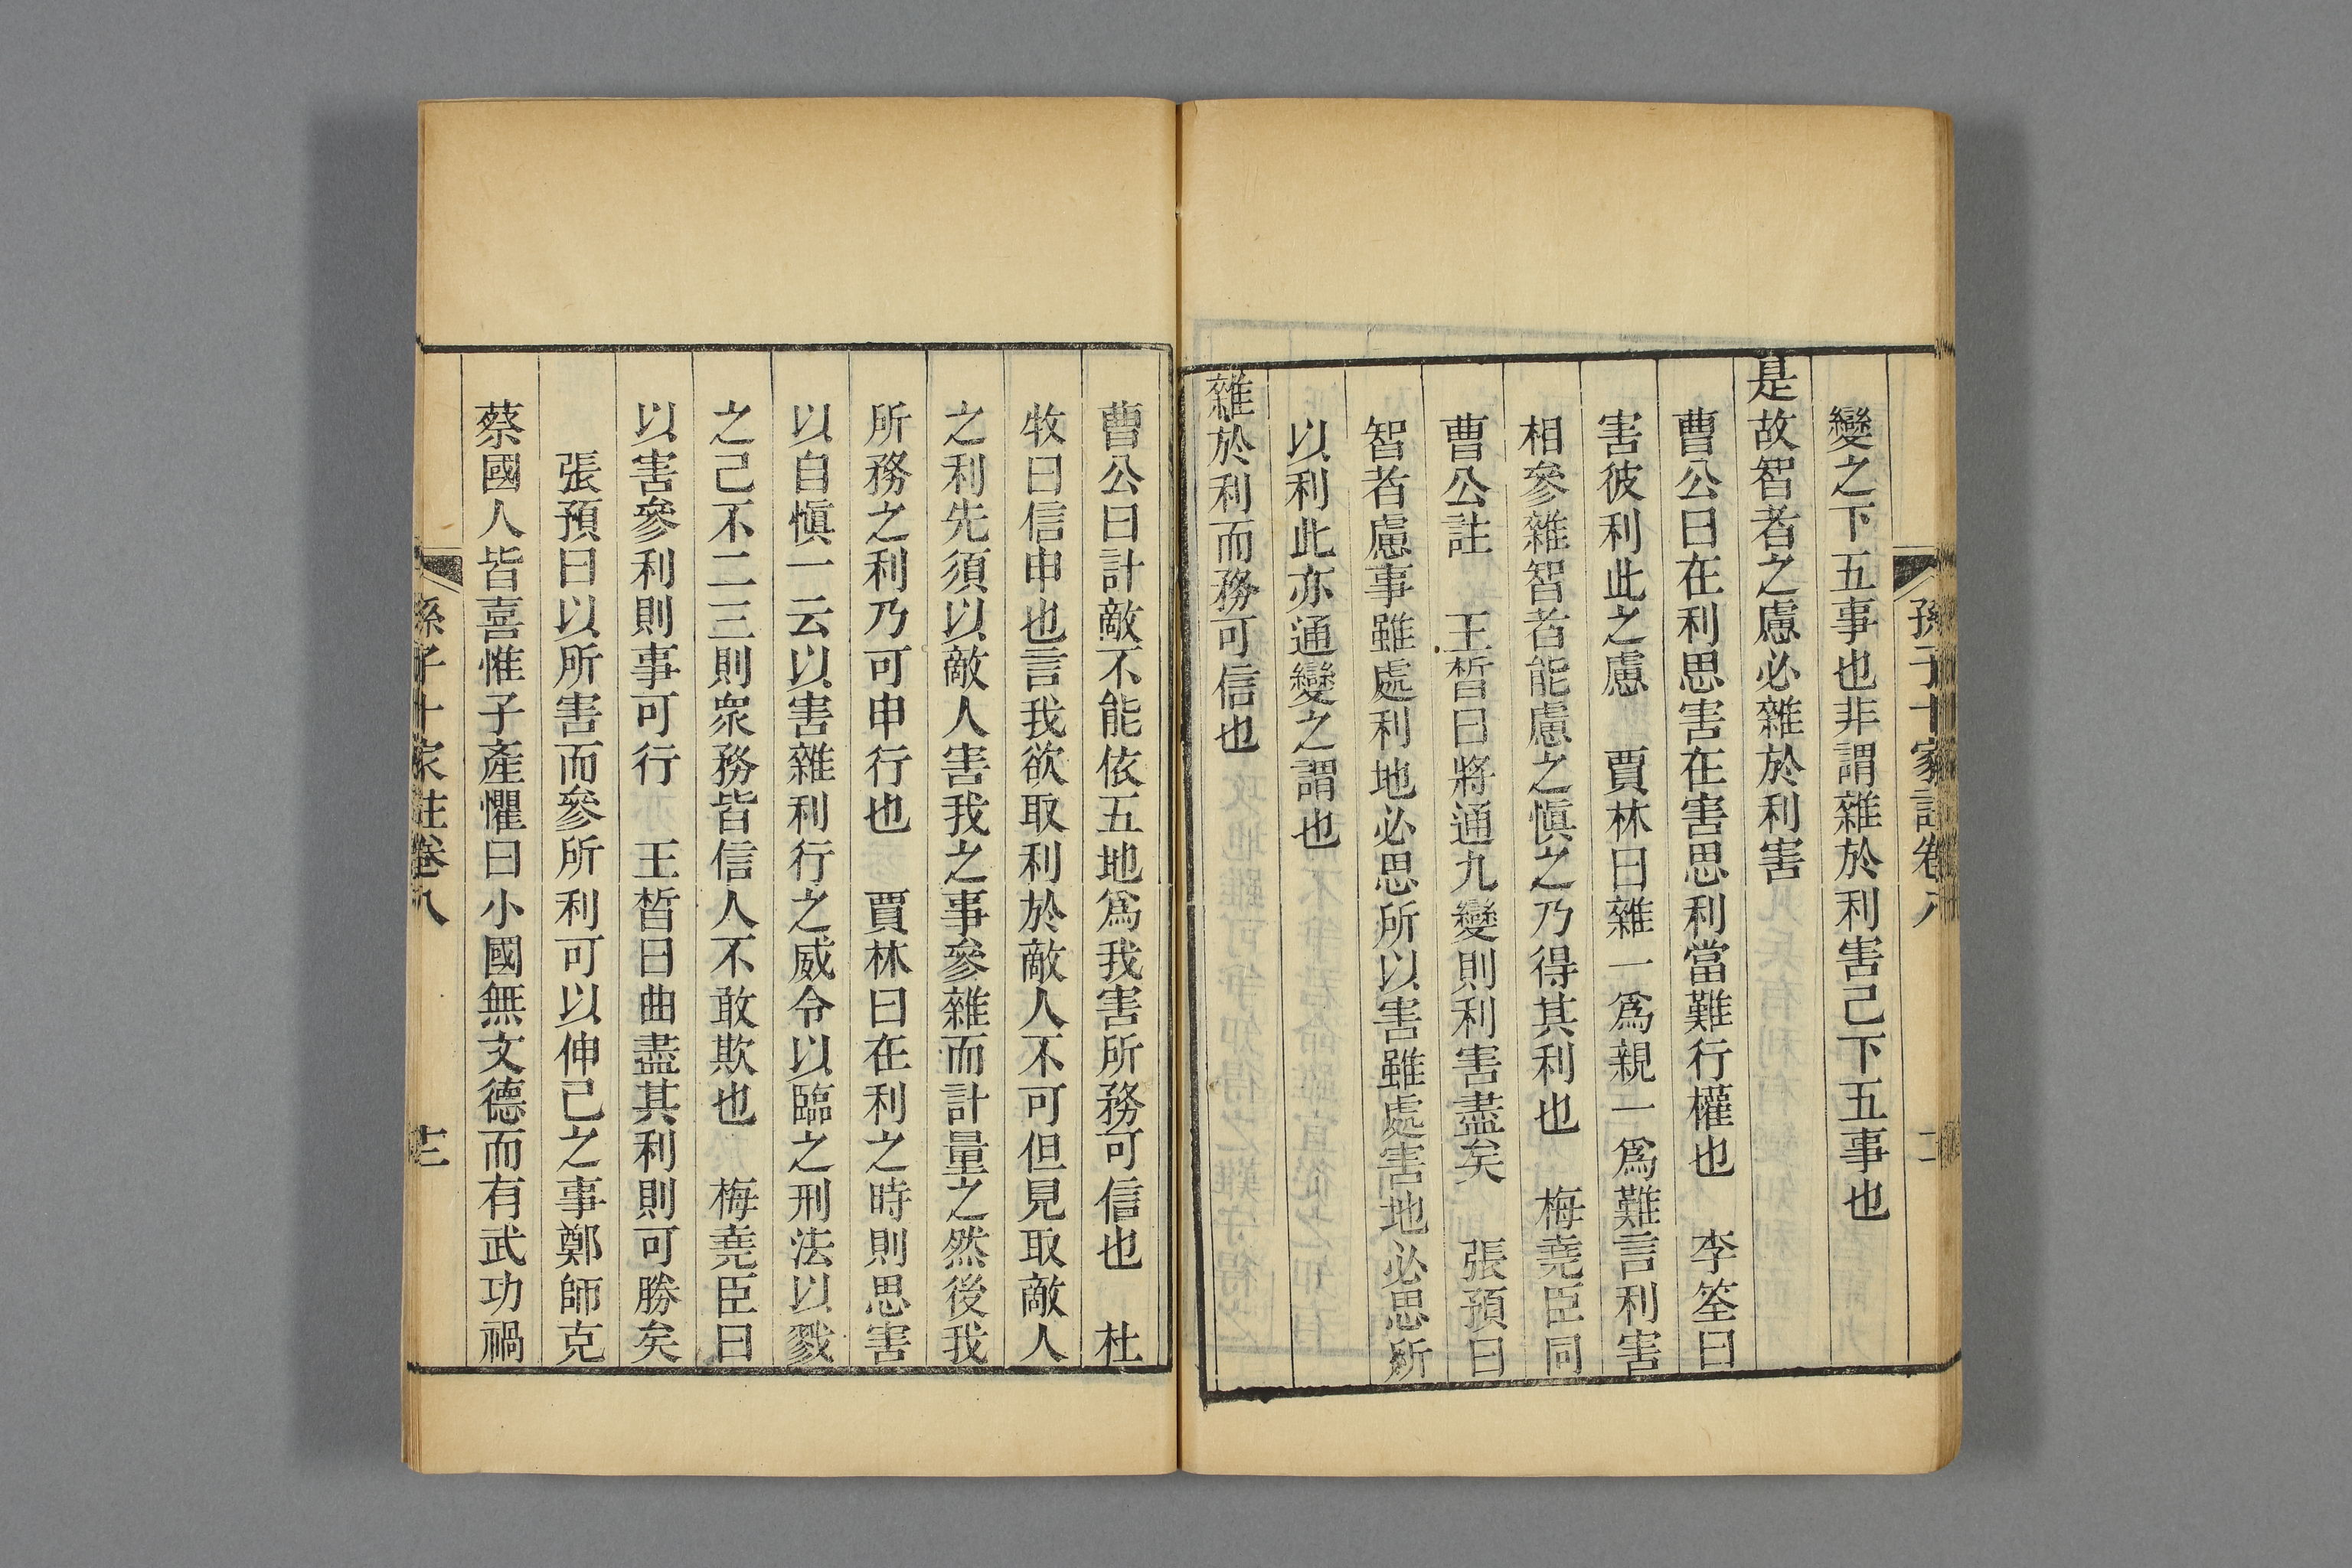 孫子十家註卷八
變之下五事也非謂雜於利害己下五事也
是故智者之慮必雜於利害
曹公曰在利思害在害思利當難行權也　李筌曰
害彼利此之慮　賈林曰雜一爲親一爲難言利害
相參雜智者能慮之愼之乃得其利也　梅堯臣同
曹公註　王晳曰將通九變則利害盡矣　張預曰
智者慮事雖處利地必思所以害雖處害地必思所
以利此亦通變之謂也
雜於利而務可信也
曹公曰計敵不能依五地爲我害所務可信也　杜
牧曰信申也言我欲取利於敵人不可但見取敵人
之利先須以敵人害我之事參雜而計量之然後我
所務之利乃可申行也　賈林曰在利之時則思害
以自愼一云以害雜利行之威令以臨之刑法以戮
之己不二三則眾務皆信人不敢欺也　梅堯臣曰
以害參利則事可行　王晳曰曲盡其利則可勝矣
張預曰以所害而參所利可以伸己之事鄭師克
蔡國人皆喜惟子產懼曰小國無文德而有武功禍
孫子十家註卷八　十三